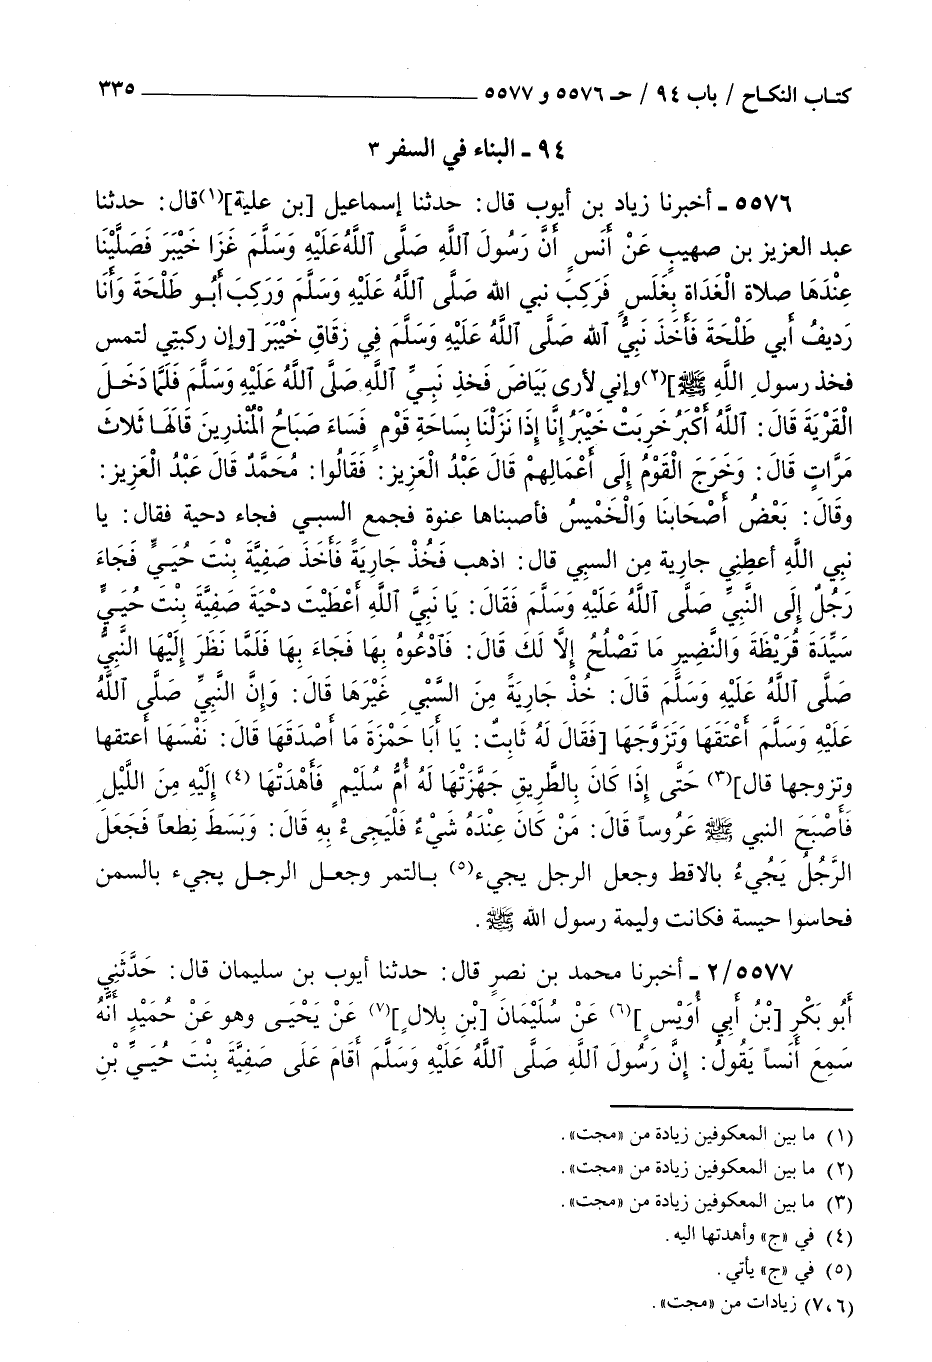 كتاب النكاح / باب ٩٤ / حـ ٥٥٧٦ و ٥٥٧٧ ٣٣٥
٩٤ ـ البناء في السفر ٣
٥٥٧٦ ـ أخبرنا زياد بن أيوب قال: حدثنا إسماعيل [بن علية](١)قال: حدثنا
عبد العزيز بن صهيبٍ عَنْ أَنَسٍ أَنَّ رَسُولَ اللَّهِ صَلَّى اللَّهُ عَلَيْهِ وَسَلَّمَ غَزَا خَيْبَرَ فَصَلَّيْنَا
عِنْدَهَا صلاة الْغَدَاةِ بِغَلَسٍ فَرَكِبَ نبي الله صَلَّى اللَّهُ عَلَيْهِ وَسَلَّمَ وَرَكِبَ أَبُو طَلْحَةَ وَأَنَا
رَدِيفُ أَبي طَلْحَةَ فَأَخَذَ نَبِيُّ اللَّه صَلَّى اللَّهُ عَلَيْهِ وَسَلَّمَ فِي زقَاقِ خَيْبَرَ [وإن ركبتي لتمس
فخذ رسول اللَّهِ ﷺ](٢)وإني لأرى بَيَاضَ فَخذِ نَبِيِّ اللَّهِ صَلَّى اللَّهُ عَلَيْهِ وَسَلَّمَ فَلَمَّا دَخَلَ
الْقَرْيَةَ قَالَ: اللَّهُ أَكْبَرُ خَرِبَتْ خَيْبَرُ إِنَّا إِذَا نَزَلْنَا بِسَاحَةِ قَوْمٍ فَسَاءَ صَبَاحُ الْمُنْذَرِينَ قَالَهَا ثَلاثَ
مَرَّاتٍ قَالَ: وَخَرَجَ الْقَوْمُ إِلَى أَعْمَالِهِمْ قَالَ عَبْدُ الْعَزِيزِ: فَقَالُوا: مُحَمَّدٌ قَالَ عَبْدُ الْعَزِيزِ:
وقَالَ: بَعْضُ أَصْحَابِنَا وَالْخَمِيْسُ فأصبناها عنوة فجمع السبي فجاء دحية فقال: يا
نبي اللَّهِ أعطِنِي جارية مِن السبي قال: اذهب فَخُذْ جَارِيَةً فَأَخَذَ صَفِيَّةَ بِنْتَ حُيَيٍّ فَجَاءَ
رَجُلٌ إِلَى النَّبِيِّ صَلَّى اللَّهُ عَلَيْهِ وَسَلَّمَ فَقَالَ: يَا نَبِيَّ اللَّهِ أَعْطَيْتَ دحْيَةَ صَفِيَّةَ بِنْتَ حُيَيٍّ
سَيِّدَةَ قُرَيْظَةَ وَالنَّضِيرِ مَا تَصْلُحُ إِلَّا لَكَ قَالَ: فَادْعُوهُ بِهَا فَجَاءَ بِهَا فَلَمَّا نَظَرَ إِلَيْهَا النَّبِيُّ
صَلَّى اللَّهُ عَلَيْهِ وَسَلَّمَ قَالَ: خُذْ جَارِيَةً مِنَ السَّبْيِ غَيْرَهَا قَالَ: وَإِنَّ النَّبِيِّ صَلَّى اللَّهُ
عَلَيْهِ وَسَلَّمَ أَعْتَقَهَا وَتَزَوَّجَهَا [فَقَالَ لَهُ ثَابِتٌ: يَا أَبَا حَمْزَةَ مَا أَصْدَقَهَا قَالَ: نَفْسَهَا أعتقها
وتزوجها قال](٣) حَتَّى إِذَا كَانَ بِالطَّرِيقِ جَهَّزَتْهَا لَهُ أُمُّ سُلَيْمٍ فَأَهْدَتْهَا (٤) إِلَيْهِ مِنَ اللَّيْلِ
فَأَصْبَحَ النبي ﷺ عَرُوساً قَالَ: مَنْ كَانَ عِنْدَهُ شَيْءٌ فَلْيَجِىءْ بِهِ قَالَ: وَبَسَطَ نِطعاً فَجَعَلَ
الرَّجُلُ يَجُيءُ بالاقط وجعل الرجل يجيء(٥) بالتمر وجعل الرجل يجيء بالسمن
فحاسوا حيسة فكانت وليمة رسول الله ﷺ.
٢/٥٥٧٧ ـ أخبرنا محمد بن نصرٍ قال: حدثنا أيوب بن سليمان قال: حَدَّثَنِي
أَبُو بَكْرٍ [بْنُ أَبِي أُوَيْسٍ](٦) عَنْ سُلَيْمَانَ [بْنِ بِلال](٧) عَنْ يَحْيَى وهو عَنْ حُمَيْدٍ أَنَّهُ
سَمِعَ أَنَساً يَقُولُ: إِنَّ رَسُولَ اللَّهِ صَلَّى اللَّهُ عَلَيْهِ وَسَلَّمَ أَقَامَ عَلَى صَفِيَّةَ بِنْتَ حُيَيِّ بْنِ
(١) ما بين المعكوفين زيادة من «مجت».
(٢) ما بين المعكوفين زيادة من «مجت».
(٣) ما بين المعكوفين زيادة من «مجت».
(٤) في «ج» وأهدتها اليه.
(٥) في «ج» يأتي.
(٦،٧) زيادات من «مجت».